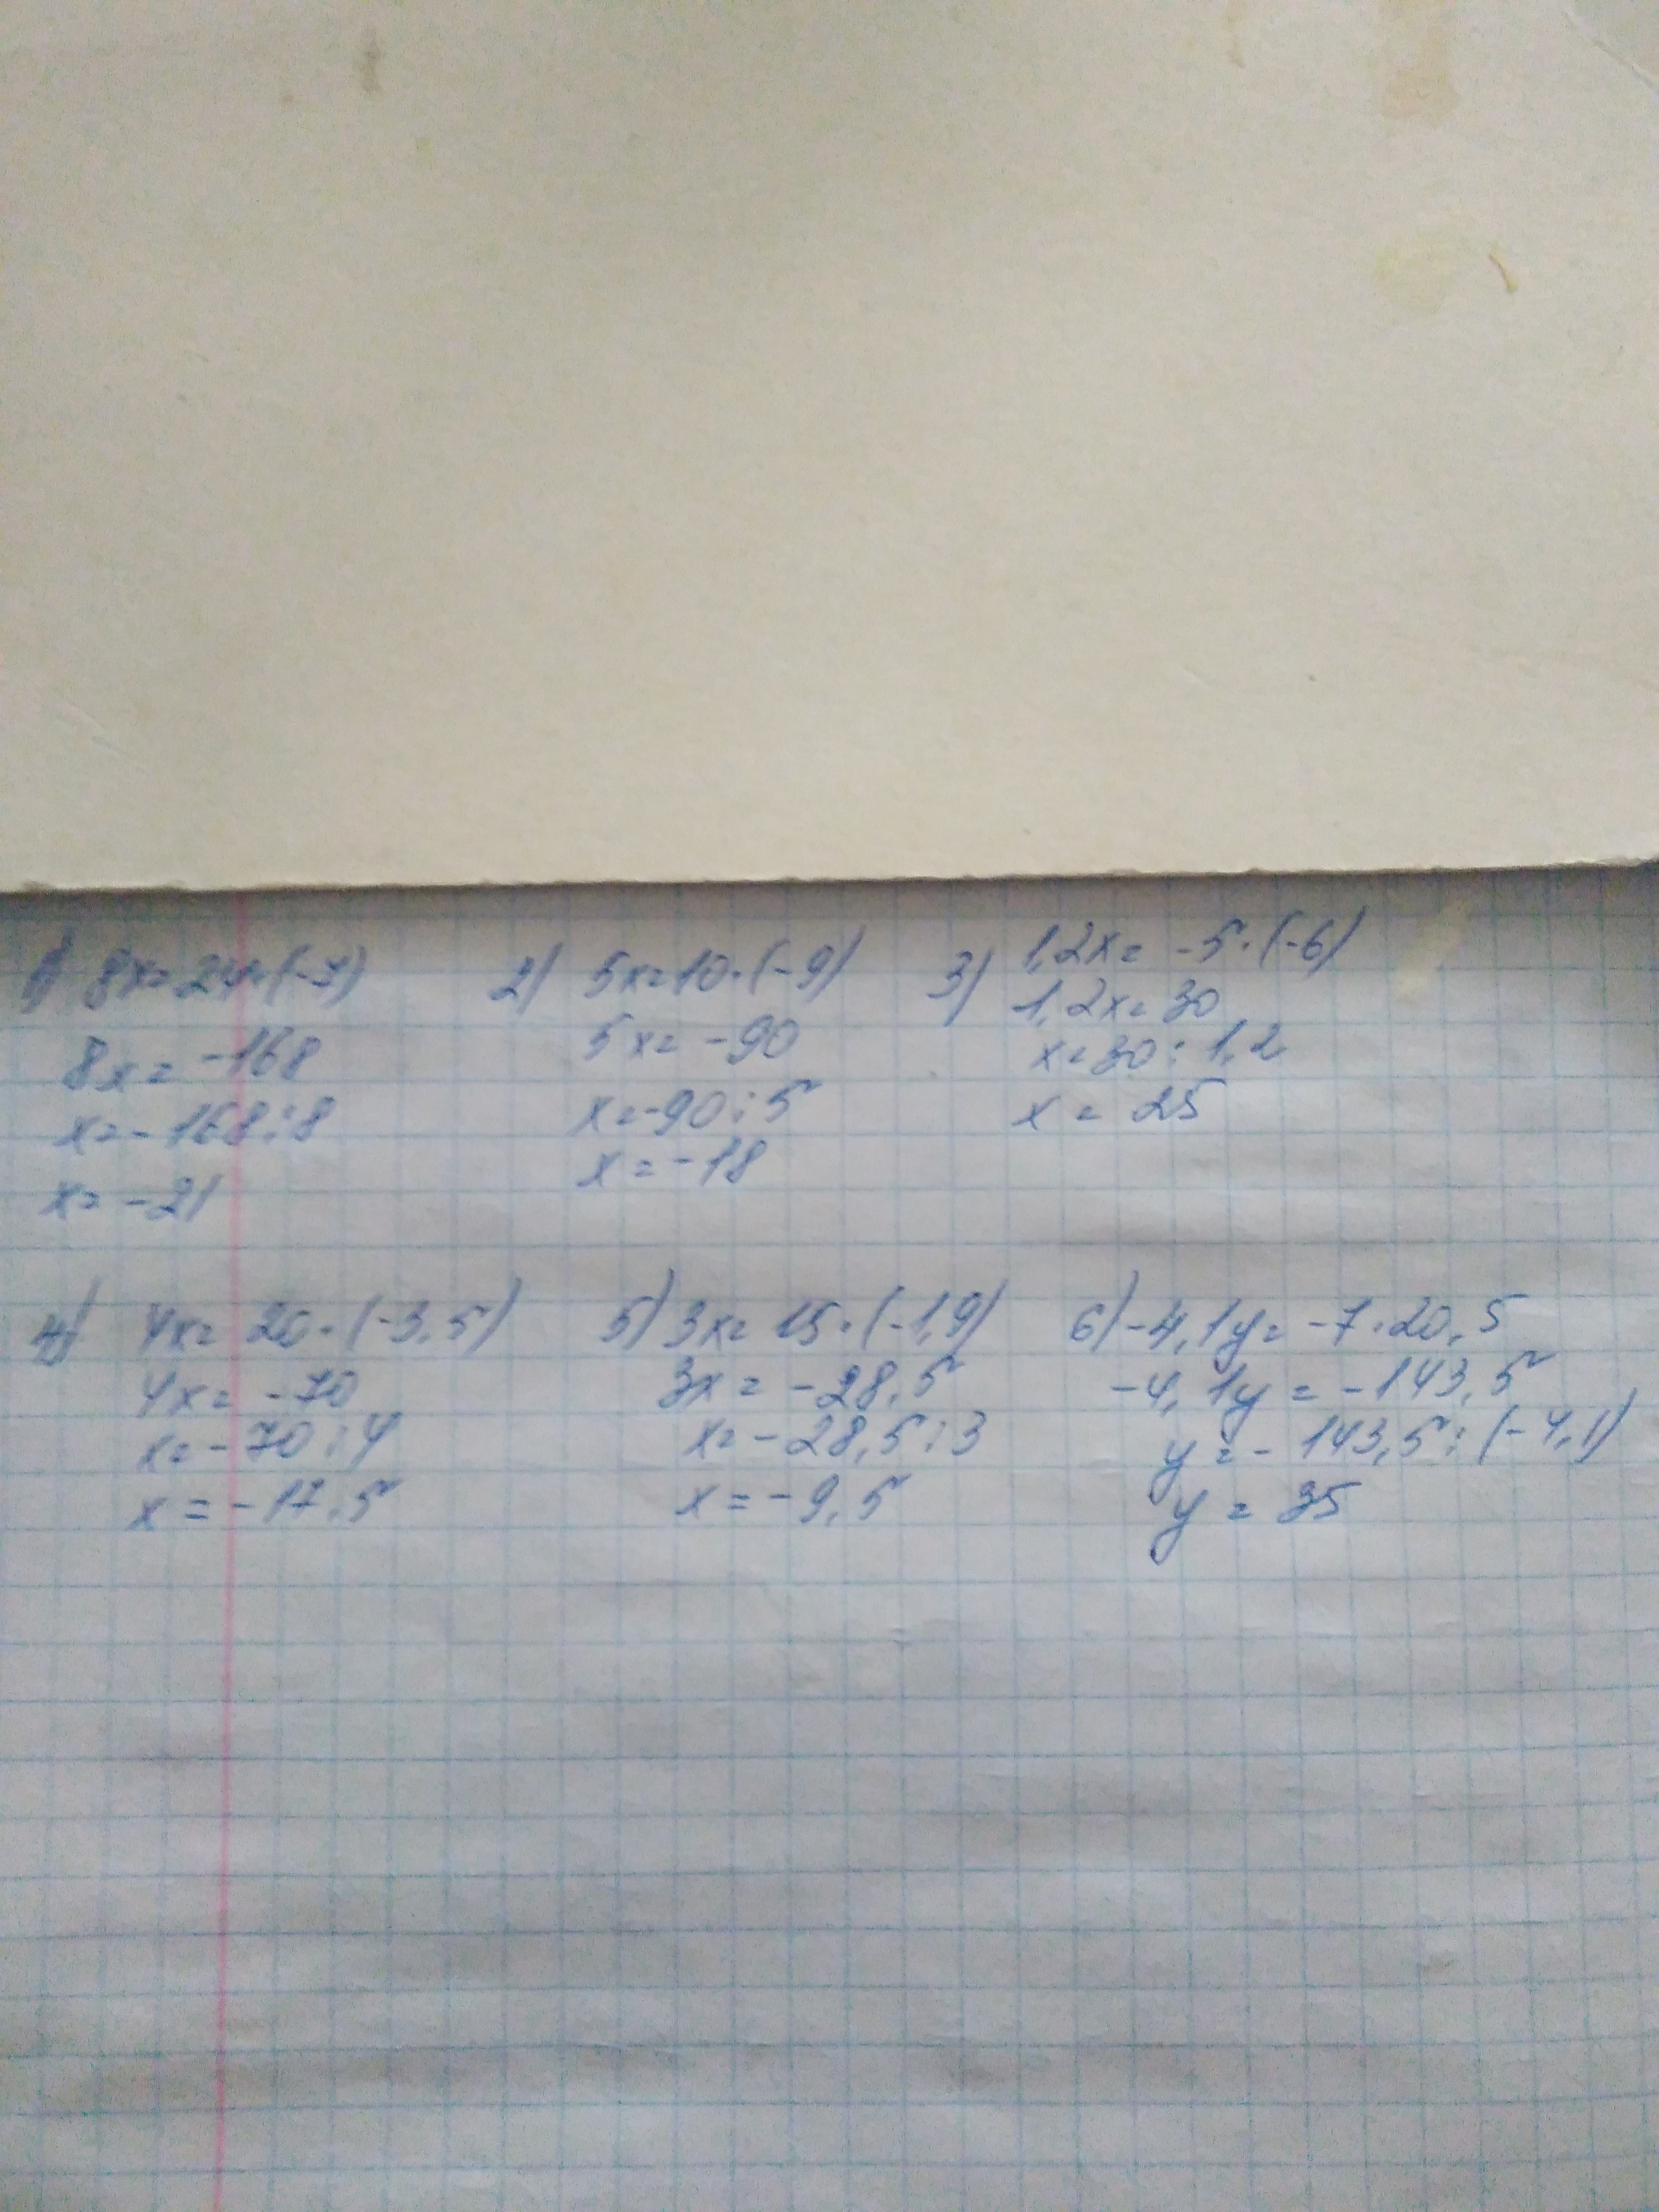 1) 8x=24·(-7)
8x= -168
x=-168:8
x= -21
2) 5x=10·(-9)
5x= -90
x=-90:5
x=-18
3) 1,2x= -5·(-6)
1,2x=30
x=30:1,2
x= 25
4) 4x= 20·(-3,5)
4x= -70
x=-70:4
x=-17,5
5) 3x=15·(-1,9)
3x= -28,5
x=-28,5:3
x=-9,5
6) -4,1y= -7·20,5
-4,1y= -143,5
y=-143,5:(-4,1)
y= 35